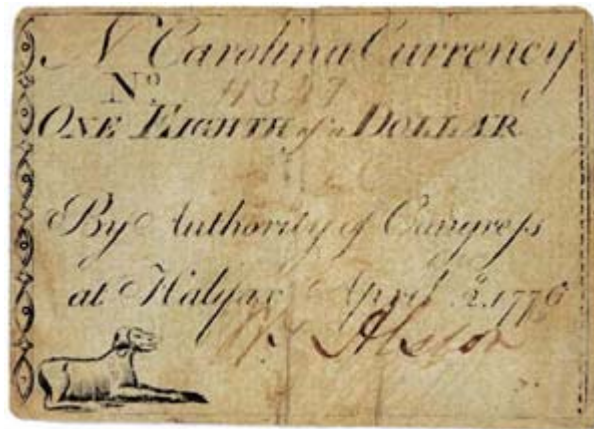 N Carolina Currency
No. 4347
ONE EIGHTH of a DOLLAR
By Authority of Congreſs
at Halifax April 2. 1776
Alston